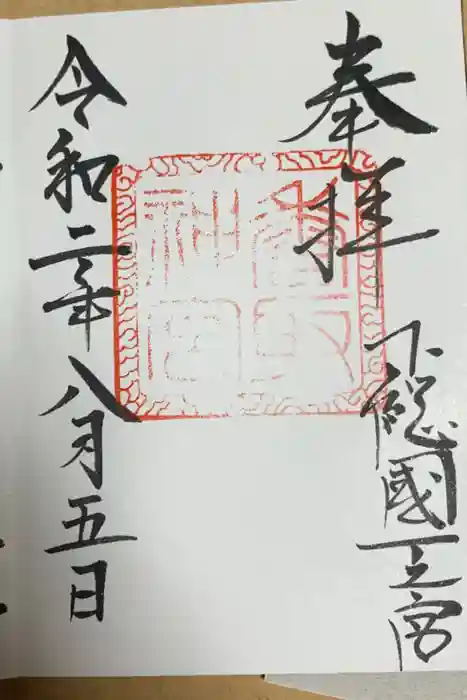 奉拝
下総國一之宮
香取
神宮
令和二年八月五日